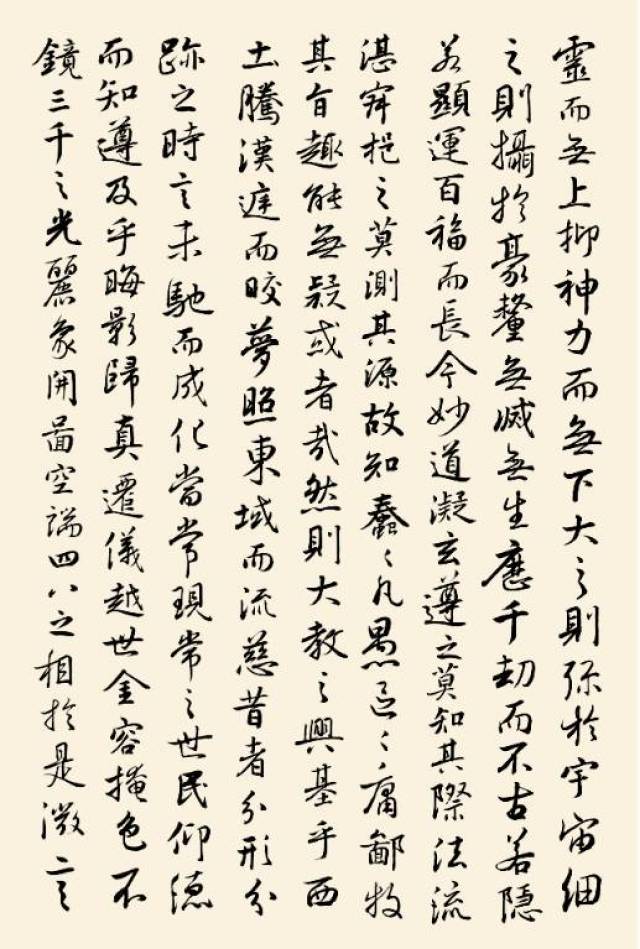 靈而無上抑神力而無下大之則弥於宇宙細
之則攝於豪釐無滅無生歷千劫而不古若隱
若顯運百福而長今妙道凝玄遵之莫知其際法流
湛寂挹之莫測其源故知蠢々凡愚區々庸鄙投
其旨趣能無疑或者哉然則大教之興基乎西
土騰漢庭而皎夢照東域而流慈昔者分形分
跡之時言未馳而成化當常現常之世民仰德
而知遵及乎晦影歸真遷儀越世金容掩色不
鏡三千之光麗象開圖空端四八之相於是微言